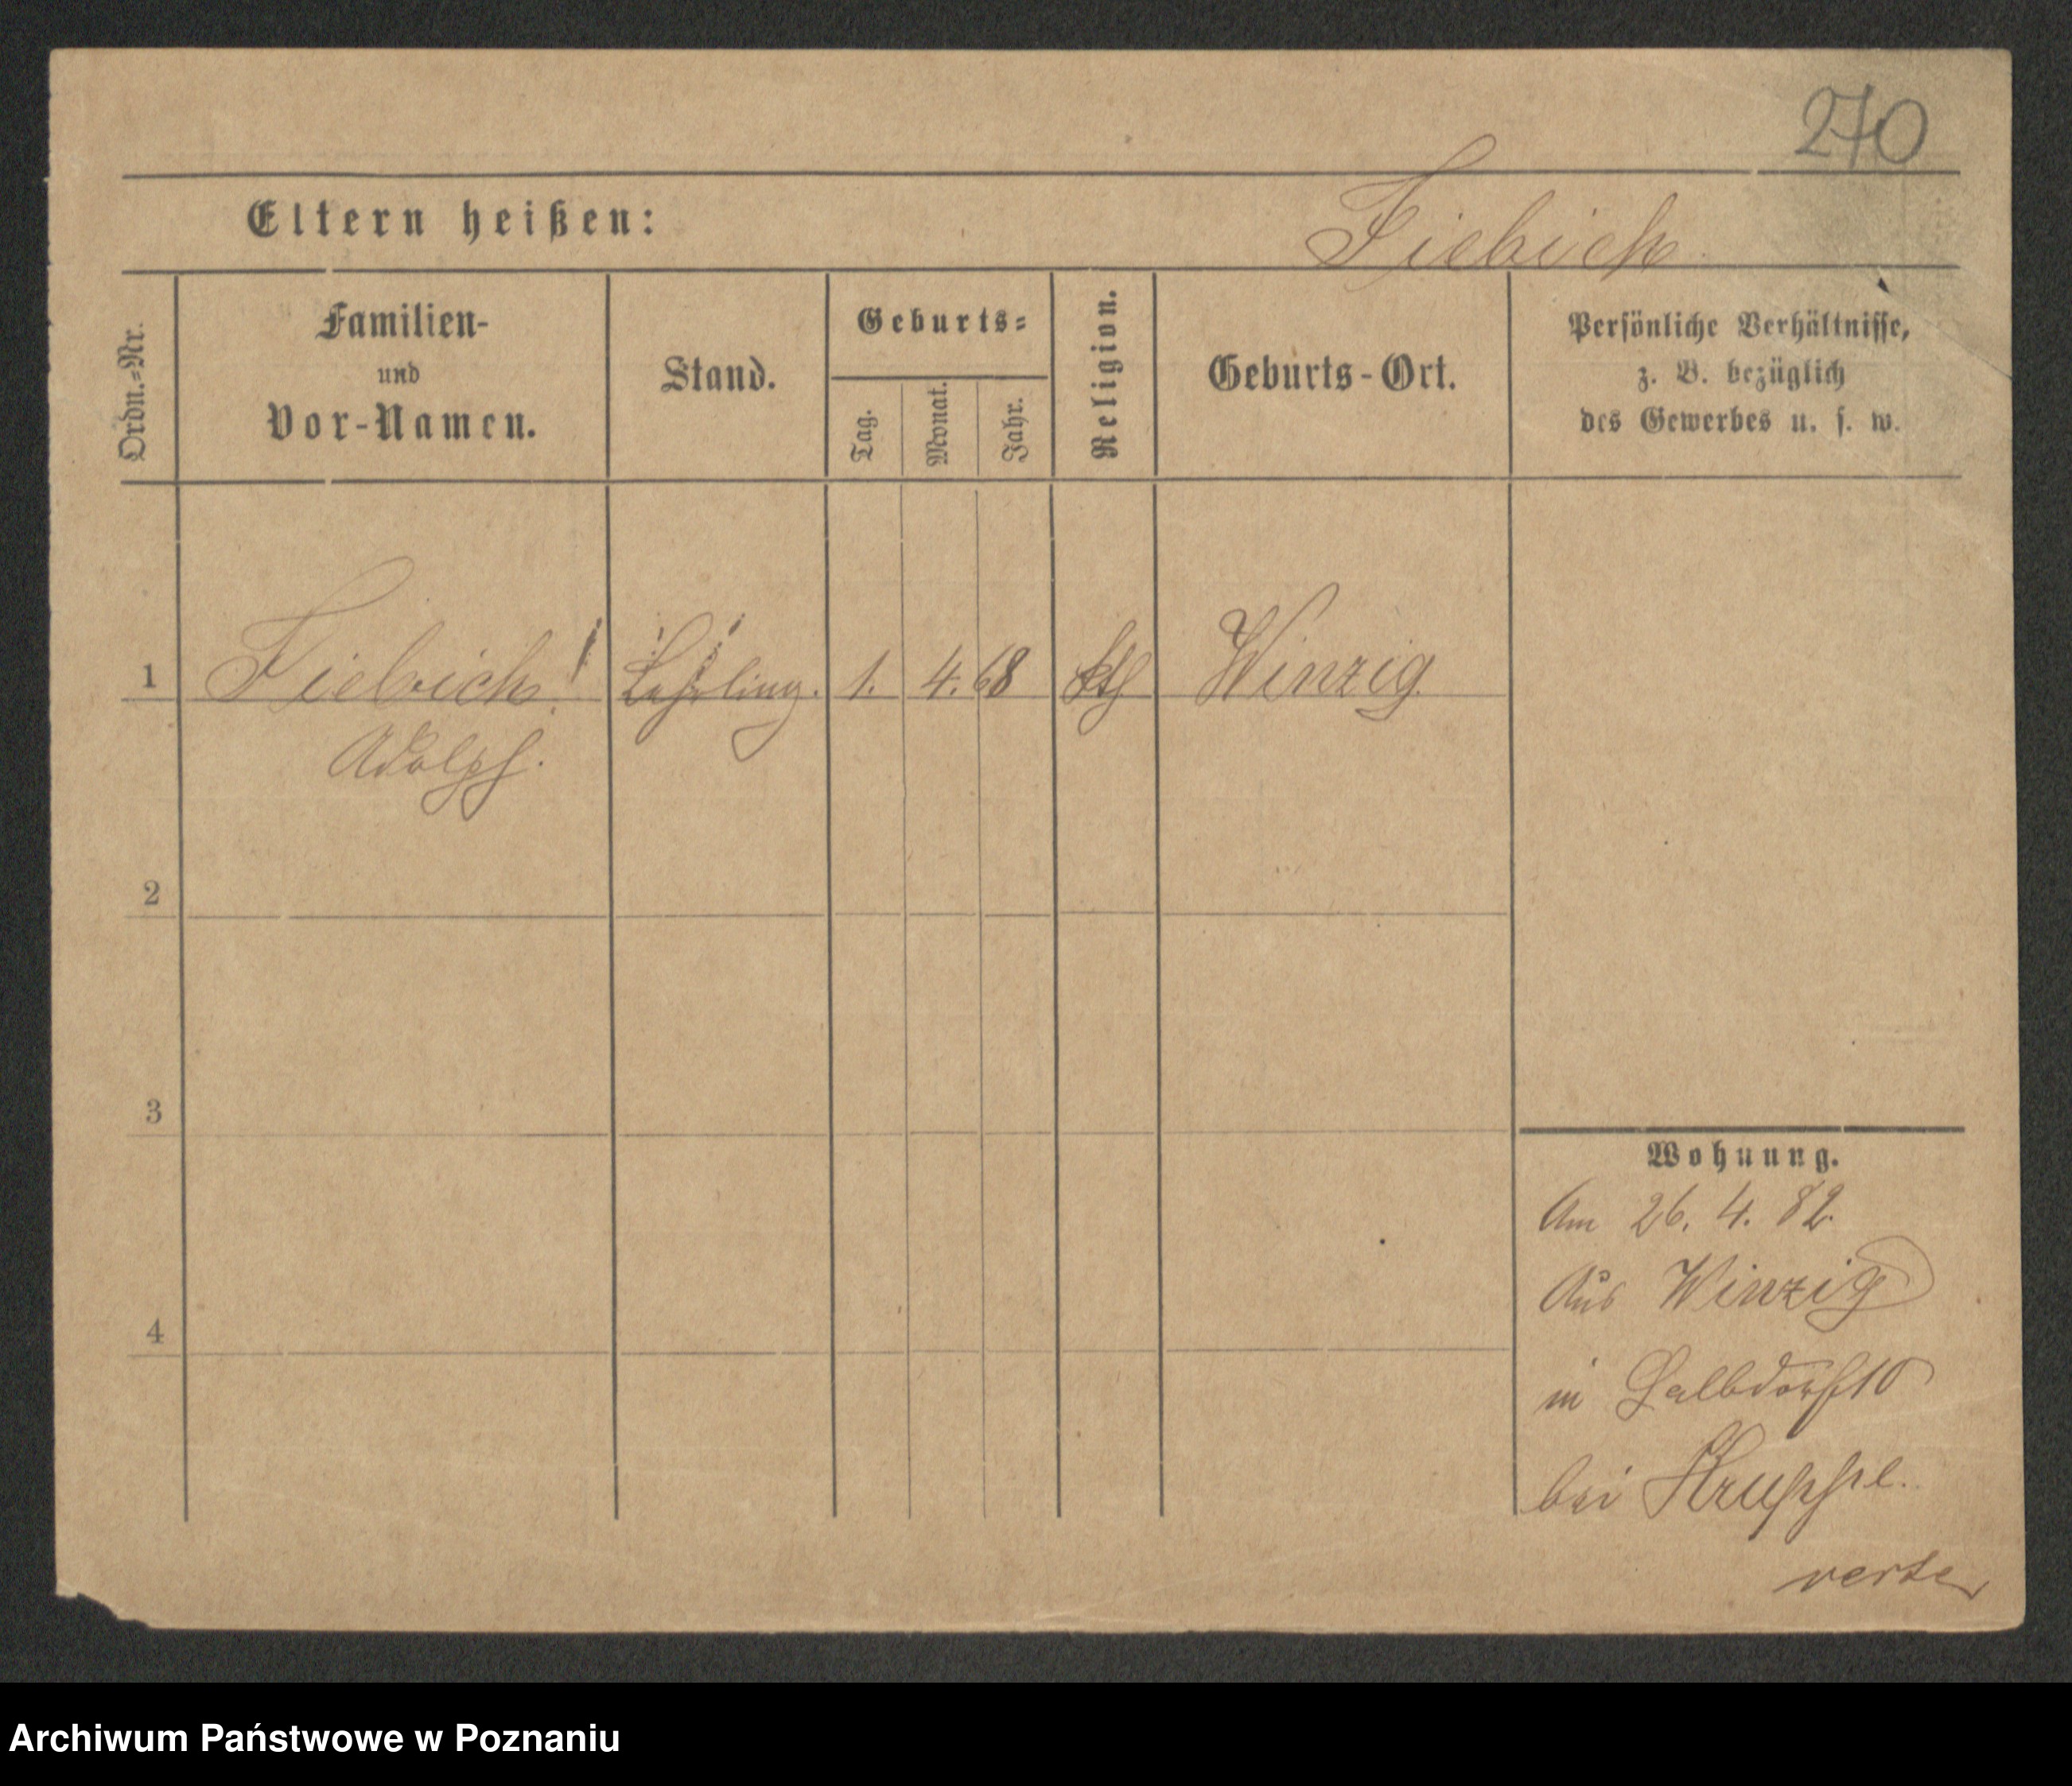 270
Eltern heißen:
Fiebich
Ordn.=Nr.
Familien-
und
Vor-Namen.
Stand.
Geburts=
Tag.
Monat.
Jahr.
Religion.
Geburts-Ort.
Persönliche Verhältnisse,
z. B. bezüglich
des Gewerbes u. s. w.
1 Fiebich Lehrling. 1. 4. 68 kth Winzig
Adolph.
2
3
4
Wohnung.
Am 26. 4. 82.
Aus Winzig
in Halbdorfst 10
bei
verte
Archiwum Państwowe w Poznaniu